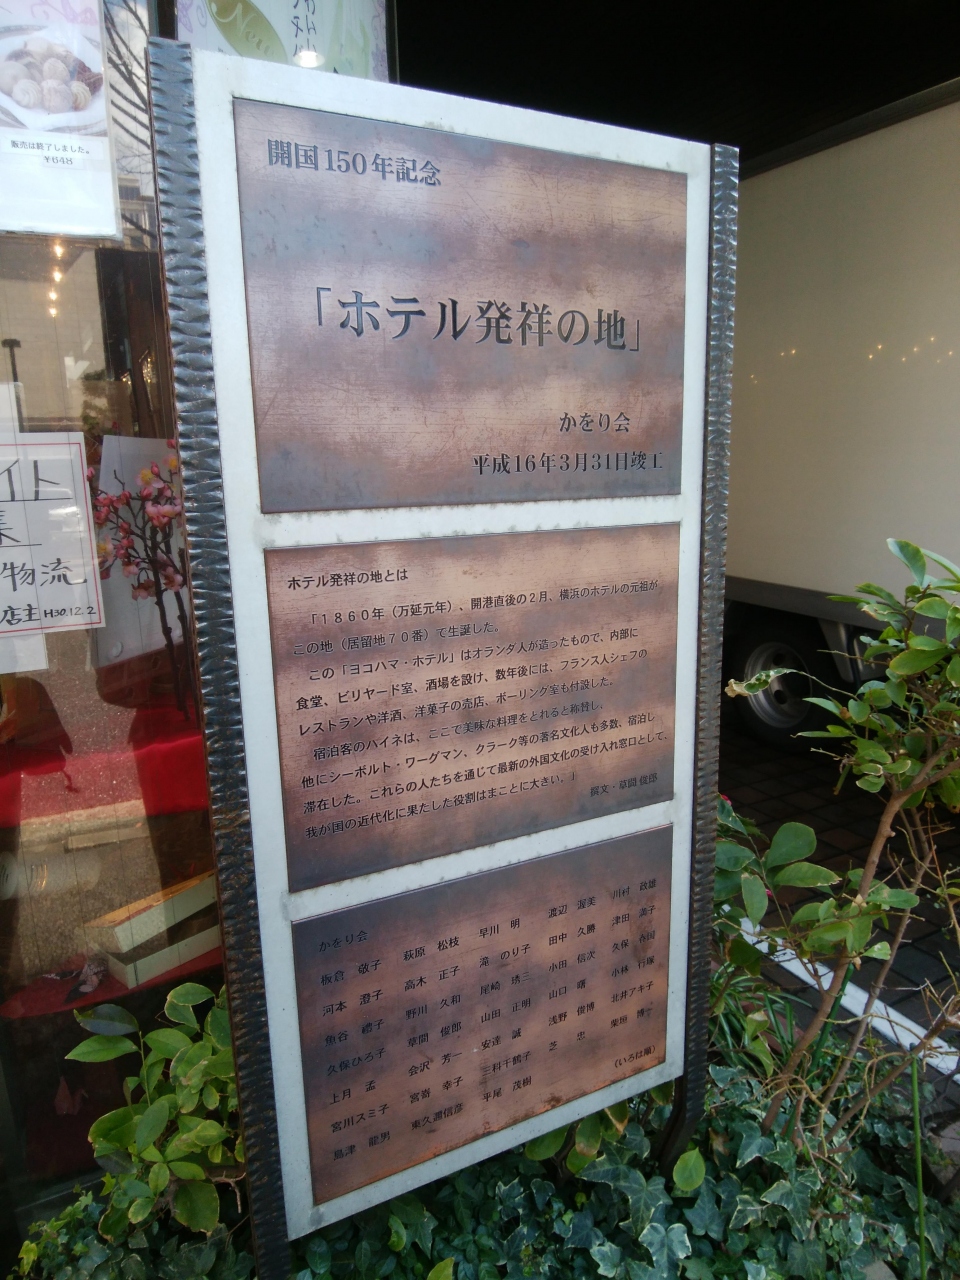 New
販売は終了しました。
¥648
イト
集
物流
店主 H30.12.2
開国150年記念
「ホテル発祥の地」
かをり会
平成16年3月31日竣工
ホテル発祥の地とは
「1860年(万延元年)、開港直後の2月、横浜のホテルの元祖が
この地(居留地70番)で生誕した。
この「ヨコハマ・ホテル」はオランダ人が造ったもので、内部に
食堂、ビリヤード室、酒場を設け、数年後には、フランス人シェフの
レストランや洋酒、洋菓子の売店、ボーリング室も付設した。
宿泊客のハイネは、ここで美味な料理をとれると称賛し、
他にシーボルト・ワーグマン、クラーク等の著名文化人も多数、宿泊し
滞在した。これらの人たちを通じて最新の外国文化の受け入れ窓口として、
我が国の近代化に果たした役割はまことに大きい。」
撰文・草間 俊郎
かをり会
板倉 敬子 萩原 松枝 早川 明 渡辺 渥美 川村 政雄
河本 澄子 高木 正子 滝 のり子 田中 久勝 津田 満子
魚谷 禮子 野川 久和 尾崎 琇三 小田 信次 久保
久保ひろ子 草間 俊郎 山田 正明 山口 曙 小林 行塚
上月 孟 会沢 芳一 安達 誠 浅野 俊博 北井アキ子
宮川スミ子 宮嵜 幸子 三科千鶴子 芝 忠 柴垣 博
島津 龍男 東久邇信彦 平尾 茂樹
(いろは順)